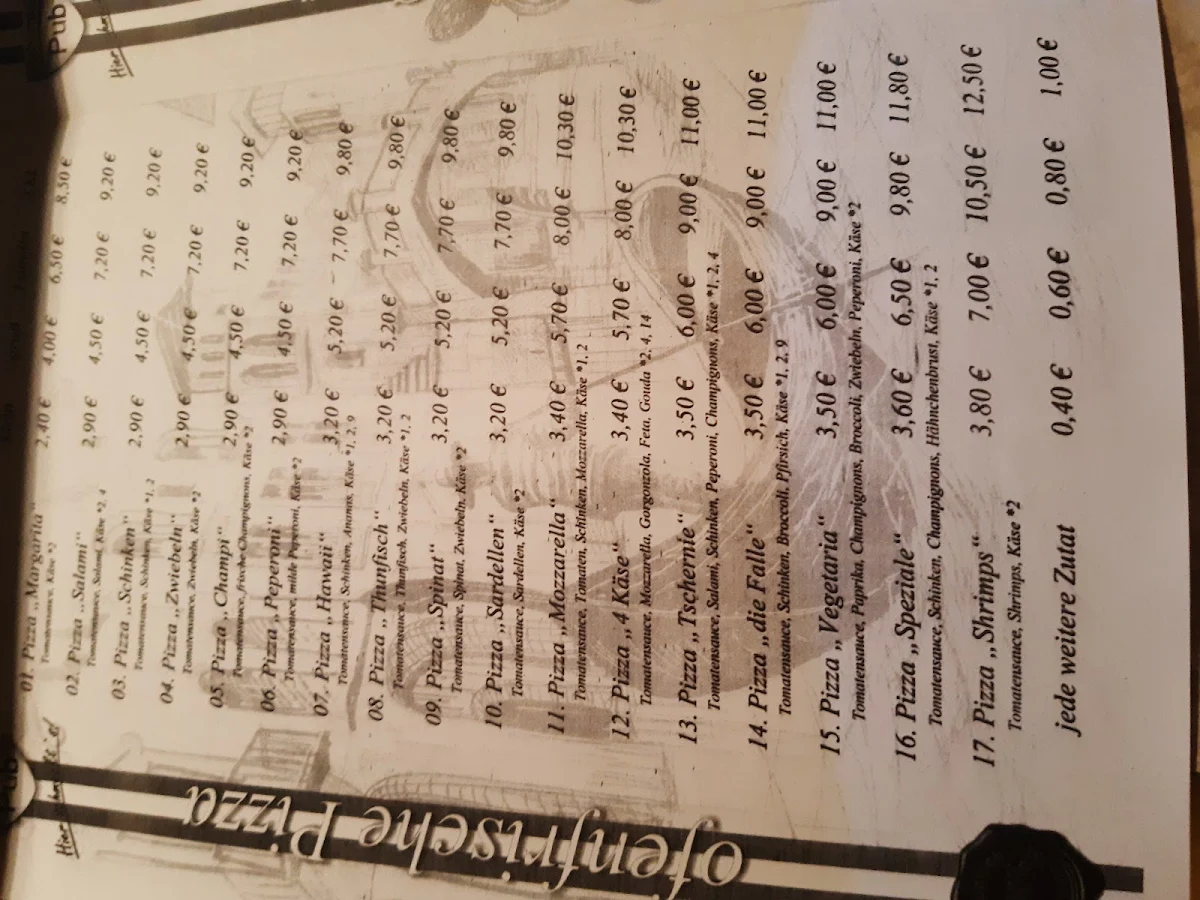 Pub
Hier
ofenfrische Pizza
01. Pizza „Margarita“ 2,40 € 4,00 € 6,50 € 8,50 €
Tomatensauce, Käse *2
02. Pizza „Salami“ 2,90 € 4,50 € 7,20 € 9,20 €
Tomatensauce, Salami, Käse *2, 4
03. Pizza „Schinken“ 2,90 € 4,50 € 7,20 € 9,20 €
Tomatensauce, Schinken, Käse *1, 2
04. Pizza „Zwiebeln“ 2,90 € 4,50 € 7,20 € 9,20 €
Tomatensauce, Zwiebeln, Käse *2
05. Pizza „Champi“ 2,90 € 4,50 € 7,20 € 9,20 €
Tomatensauce, frische Champignons, Käse *2
06. Pizza „Peperoni“ 2,90 € 4,50 € 7,20 € 9,20 €
Tomatensauce, milde Peperoni, Käse *2
07. Pizza „Hawaii“ 3,20 € 5,20 € 7,70 € 9,80 €
Tomatensauce, Schinken, Ananas, Käse *1, 2, 9
08. Pizza „Thunfisch“ 3,20 € 5,20 € 7,70 € 9,80 €
Tomatensauce, Thunfisch, Zwiebeln, Käse *1, 2
09. Pizza „Spinat“ 3,20 € 5,20 € 7,70 € 9,80 €
Tomatensauce, Spinat, Zwiebeln, Käse *2
10. Pizza „Sardellen“ 3,20 € 5,20 € 7,70 € 9,80 €
Tomatensauce, Sardellen, Käse *2
11. Pizza „Mozzarella“ 3,40 € 5,70 € 8,00 € 10,30 €
Tomatensauce, Tomaten, Schinken, Mozzarella, Käse *1, 2
12. Pizza „4 Käse“ 3,40 € 5,70 € 8,00 € 10,30 €
Tomatensauce, Mozzarella, Gorgonzola, Feta, Gouda *2, 4, 14
13. Pizza „Tschernie“ 3,50 € 6,00 € 9,00 € 11,00 €
Tomatensauce, Salami, Schinken, Peperoni, Champignons, Käse *1, 2, 4
14. Pizza „die Falle“ 3,50 € 6,00 € 9,00 € 11,00 €
Tomatensauce, Schinken, Broccoli, Pfirsich, Käse *1, 2, 9
15. Pizza „Vegetaria“ 3,50 € 6,00 € 9,00 € 11,00 €
Tomatensauce, Paprika, Champignons, Broccoli, Zwiebeln, Peperoni, Käse *2
16. Pizza „Speziale“ 3,60 € 6,50 € 9,80 € 11,80 €
Tomatensauce, Schinken, Champignons, Hähnchenbrust, Käse *1, 2
17. Pizza „Shrimps“ 3,80 € 7,00 € 10,50 € 12,50 €
Tomatensauce, Shrimps, Käse *2
jede weitere Zutat 0,40 € 0,60 € 0,80 € 1,00 €